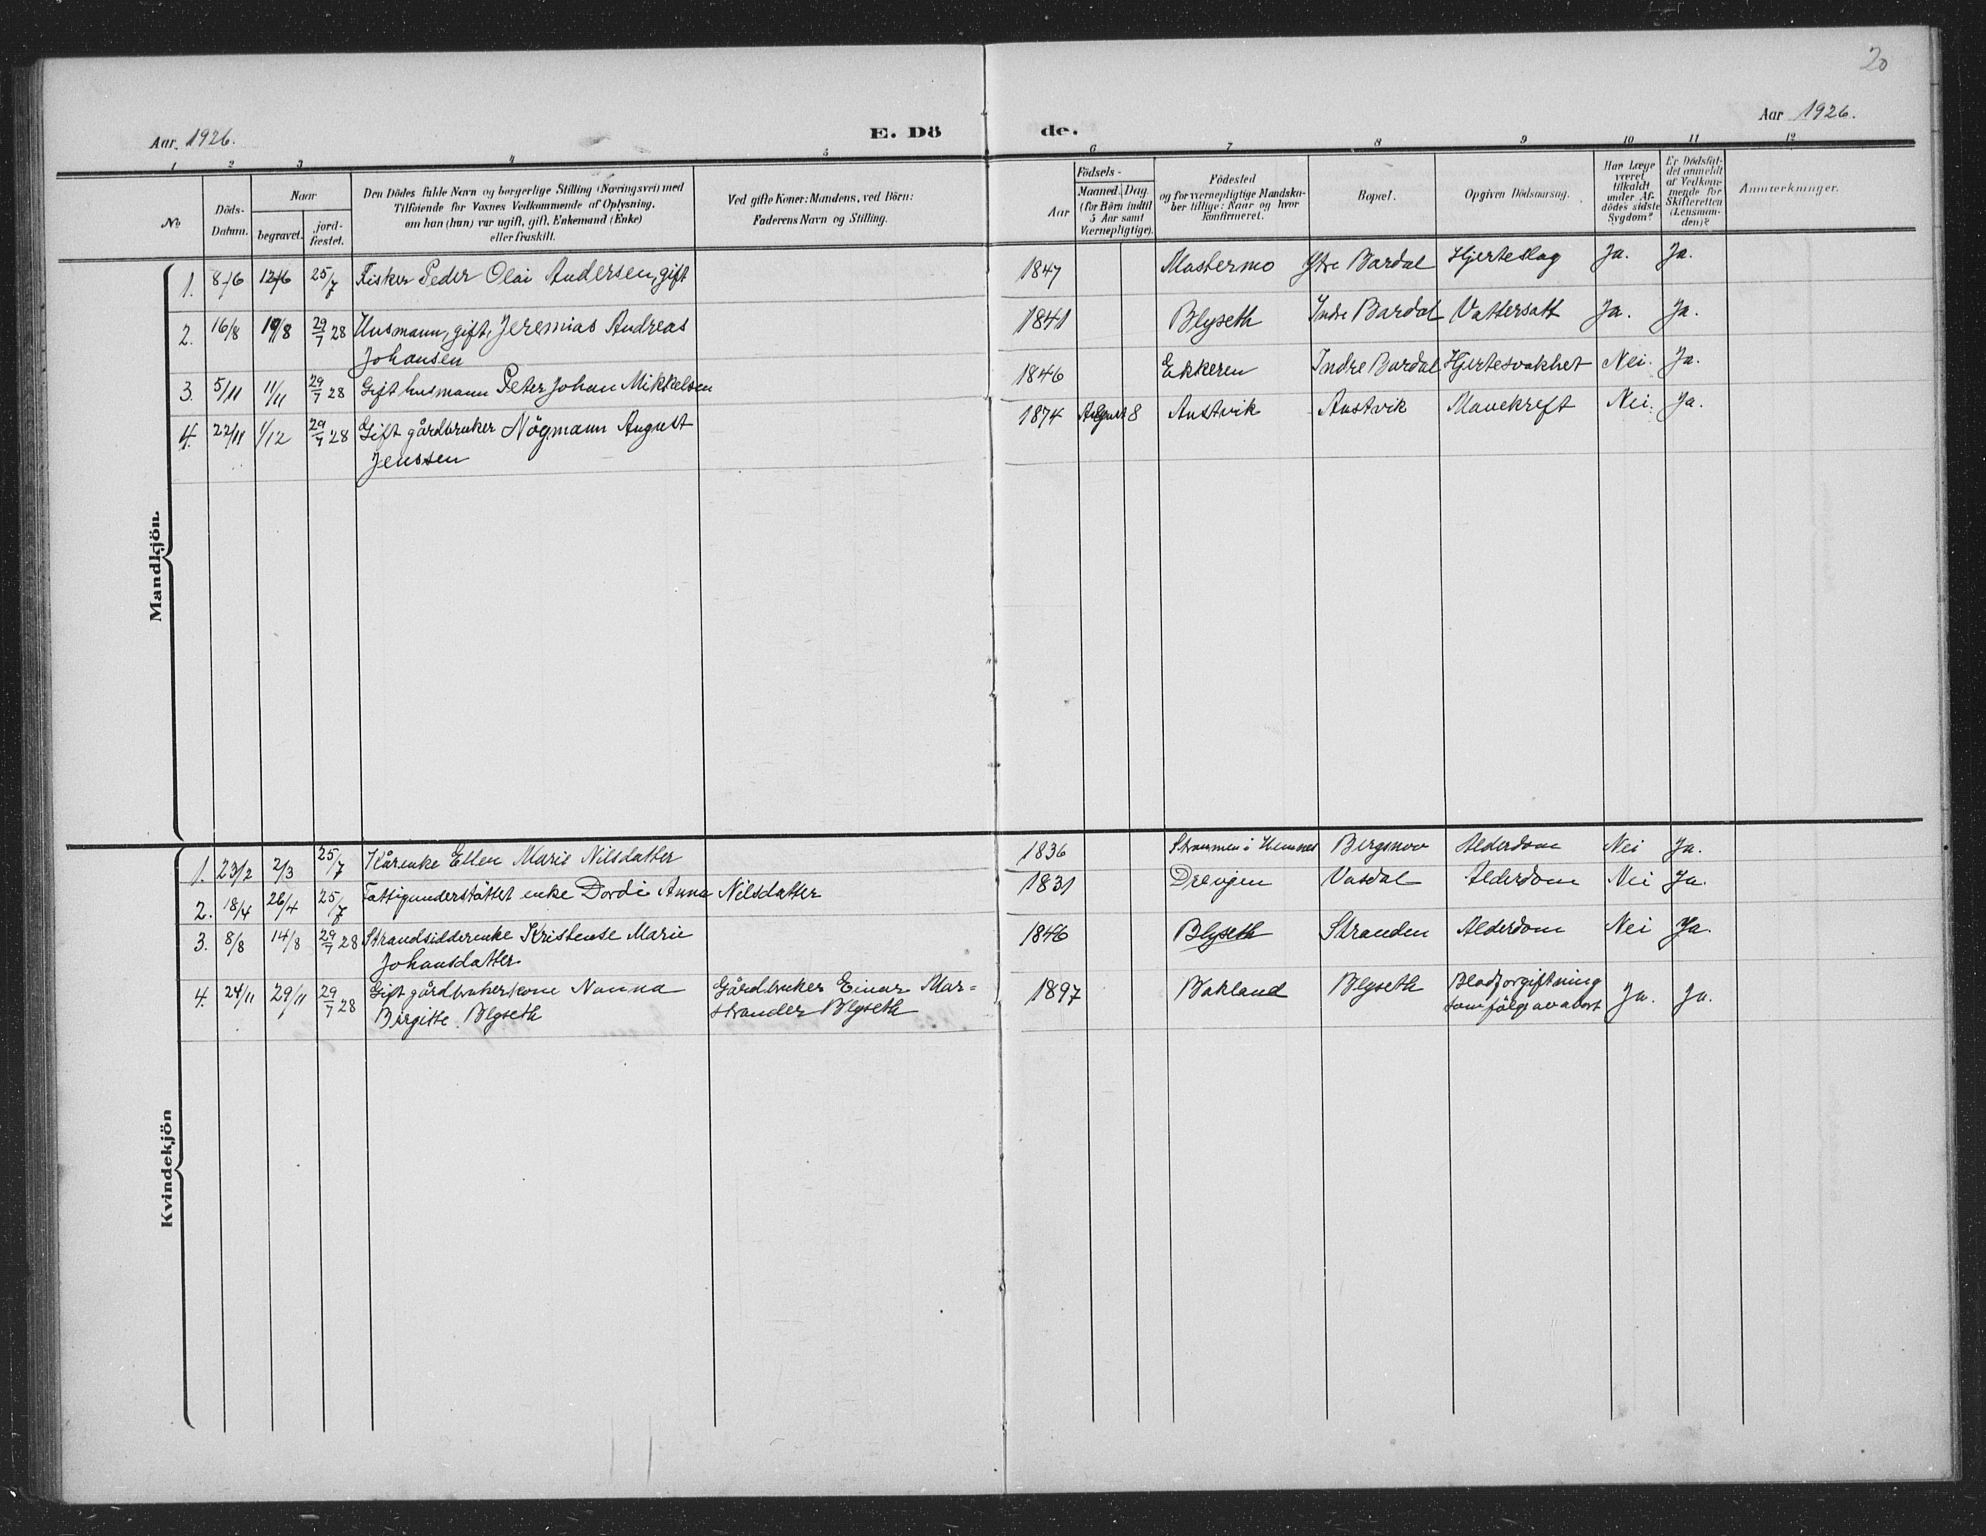 20
Aar 1926.
E. Dö
de.
Aar 1926.
1 2 3 4 5 6 7 8 9 10 11 12
No
Döds-
Datum.
Naar
begravet.
jord-
fæstet.
Den Dödes fulde Navn og borgerlige Stilling (Næringsvei) med
Tilföiende for Voxnes Vedkommende af Oplysning,
om han (hun) var ugift, gift, Enkemand (Enke)
eller fraskilt.
Ved gifte Koner: Mandens, ved Börn:
Faderens Navn og Stilling.
Födsels-
Aar
Maaned. Dag.
(for Börn indtil
5 Aar samt
Værnepligtige).
Födested
og for værnepligtige Mandska-
ber tillige: Naar og hvor
konfirmeret.
Bopæl.
Opgiven Dödsaarsag.
Har Læge
været
tilkaldt
under Af-
dödes sidste
Sygdom?
Er Dödsfal-
det anmeldt
af Vedkom-
mende for
Skifteretten
(Lensman-
den)?
Anmærkninger.
Mandkjön.
1. 8/6 12/6 25/7 Fisker Peder Olai Andersen, gift 1847 Mastermo Ytre Bardal Hjerteslag Ja. Ja.
2. 16/8 19/8 29/7 28 Husmann, gift, Jeremias Andreas 1841 Blyseth Indre Bardal Vattersatt Ja. Ja.
Johansen
3. 5/11 11/11 29/7 28 Gift husmann Peter Johan Mikkelsen 1846 Ekkeren Indre Bardal Hjertesvakhet Nei. Ja.
4. 22/11 1/12 29/7 28 Gift gårdbruker Nögmann August 1874 August 8 Austvik Austvik Mavekreft Nei. Ja.
Jenssen
Kvindekjön
1. 23/2 2/3 25/7 Kårenke Ellen Marie Nilsdatter 1836 Straumen i Hemnes Bergsmov Alderdom Nei Ja.
2. 18/4 26/4 25/7 Fattigunderstöttet enke Dordi Anna Nilsdatter 1831 Drevjen Vasdal Alderdom Nei Ja.
3. 8/8 14/8 29/7 28 Strandsidderenke Kristense Marie 1846 Blyseth Stranden Alderdom Nei Ja.
Johansdatter
4. 24/11 29/11 29/7 28 Gift gårdbrukerkone Nanna Gårdbruker Einar Mar- 1897 Bakland Blyseth Blodforgiftning Ja. Ja.
Birgitte Blyseth strander Blyseth som fölge av abort